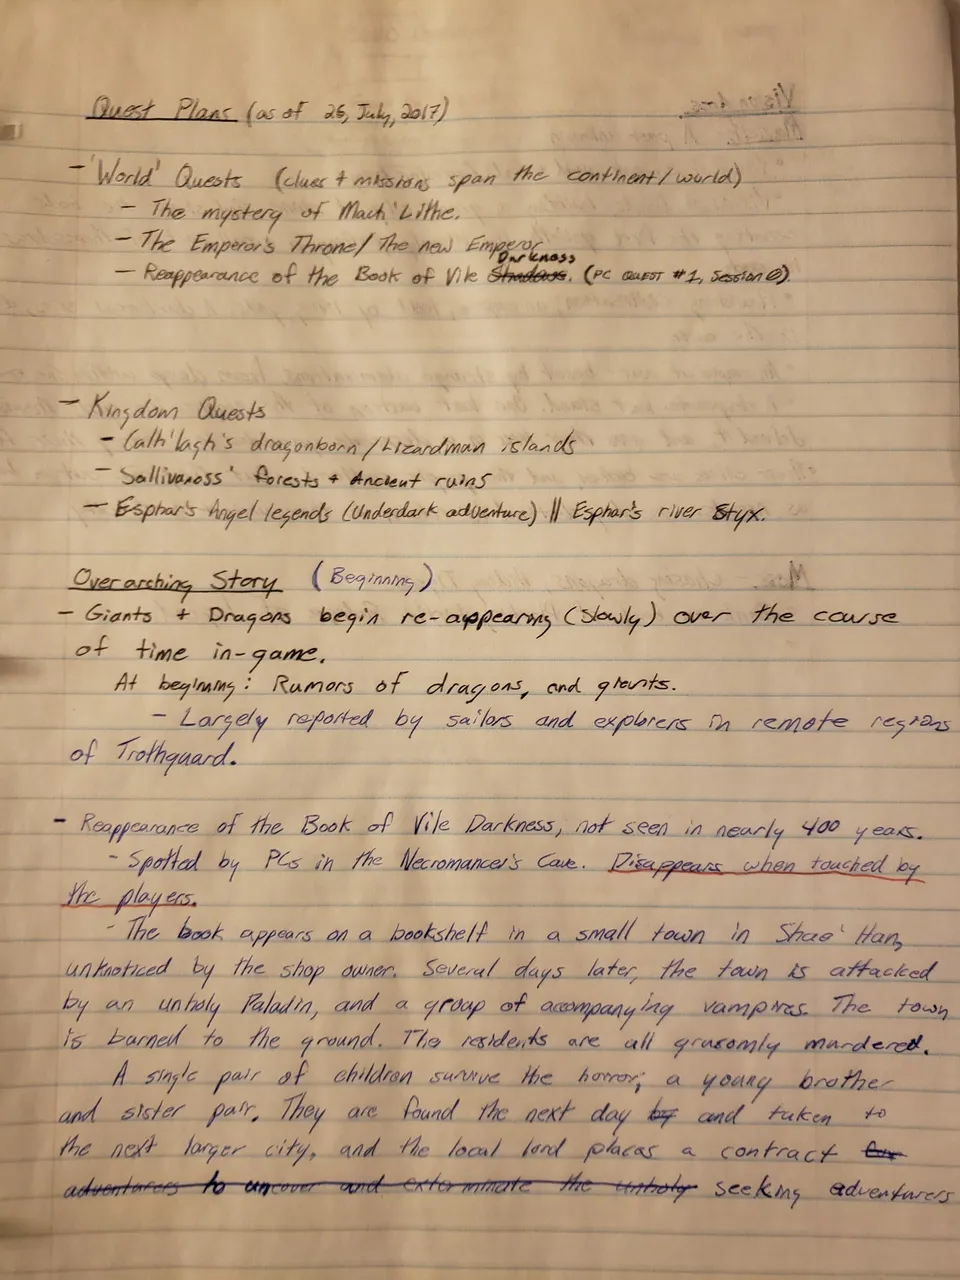 Quest Plans (as of 26, July, 2017)
- 'World' Quests (clues + missions span the continent/world)
- The mystery of Mach'Lithe.
- The Emperor's Throne/ The new Emperor
Darkness
- Reappearance of the Book of Vile Shadows. (PC QUEST #1, Session 0).
- Kingdom Quests
- Calh'lagh's dragonborn/Lizardman islands
- Sallivanoss' forests + Ancient ruins
- Esphar's Angel legends (Underdark adventure) || Esphar's river Styx.
Overarching Story (Beginning)
- Giants + Dragons begin re-appearing (slowly) over the course
of time in-game.
At beginning: Rumors of dragons, and giants.
- Largely reported by sailors and explorers in remote regions
of Trothguard.
- Reappearance of the Book of Vile Darkness, not seen in nearly 400 years.
- Spotted by PCs in the Necromancer's Cave. Disappears when touched by
the players.
- The book appears on a bookshelf in a small town in Shao' Han,
unknoticed by the shop owner. Several days later, the town is attacked
by an unholy Paladin, and a group of accompanying vampires. The town
is burned to the ground. The residents are all grusomly murdered.
A single pair of children survive the horror; a young brother
and sister pair. They are found the next day by and taken to
the next larger city, and the local lord places a contract for
adventurers to uncover and exterminate the unholy seeking adventurers